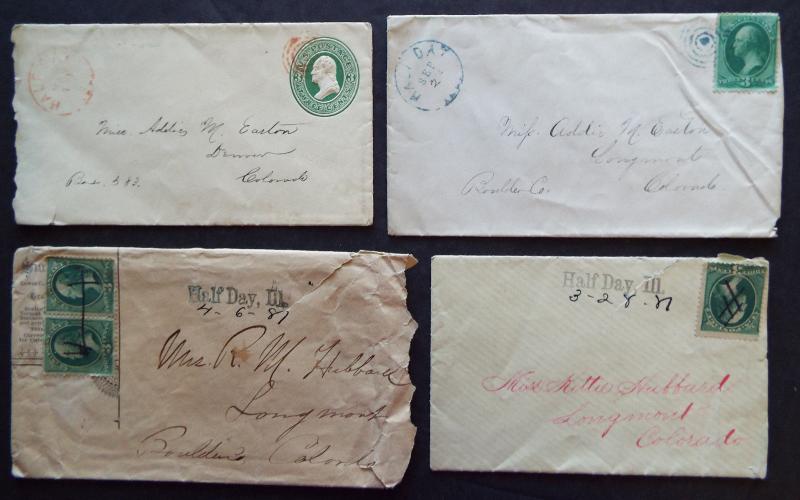 HALF
U.S. POSTAGE
Miss. Addie M. Easton
Denver
Colorado
Box 383.
HALF DAY
SEP
2
Miss. Addie M. Easton
Longmont
Boulder Co. Colorado.
Half Day, Ill.
4-6-81
Mrs. R. M. Hubbard
Longmont
Boulder Colorado
Half Day, Ill.
3-28-81
Miss Kittie Hubbard
Longmont
Colorado